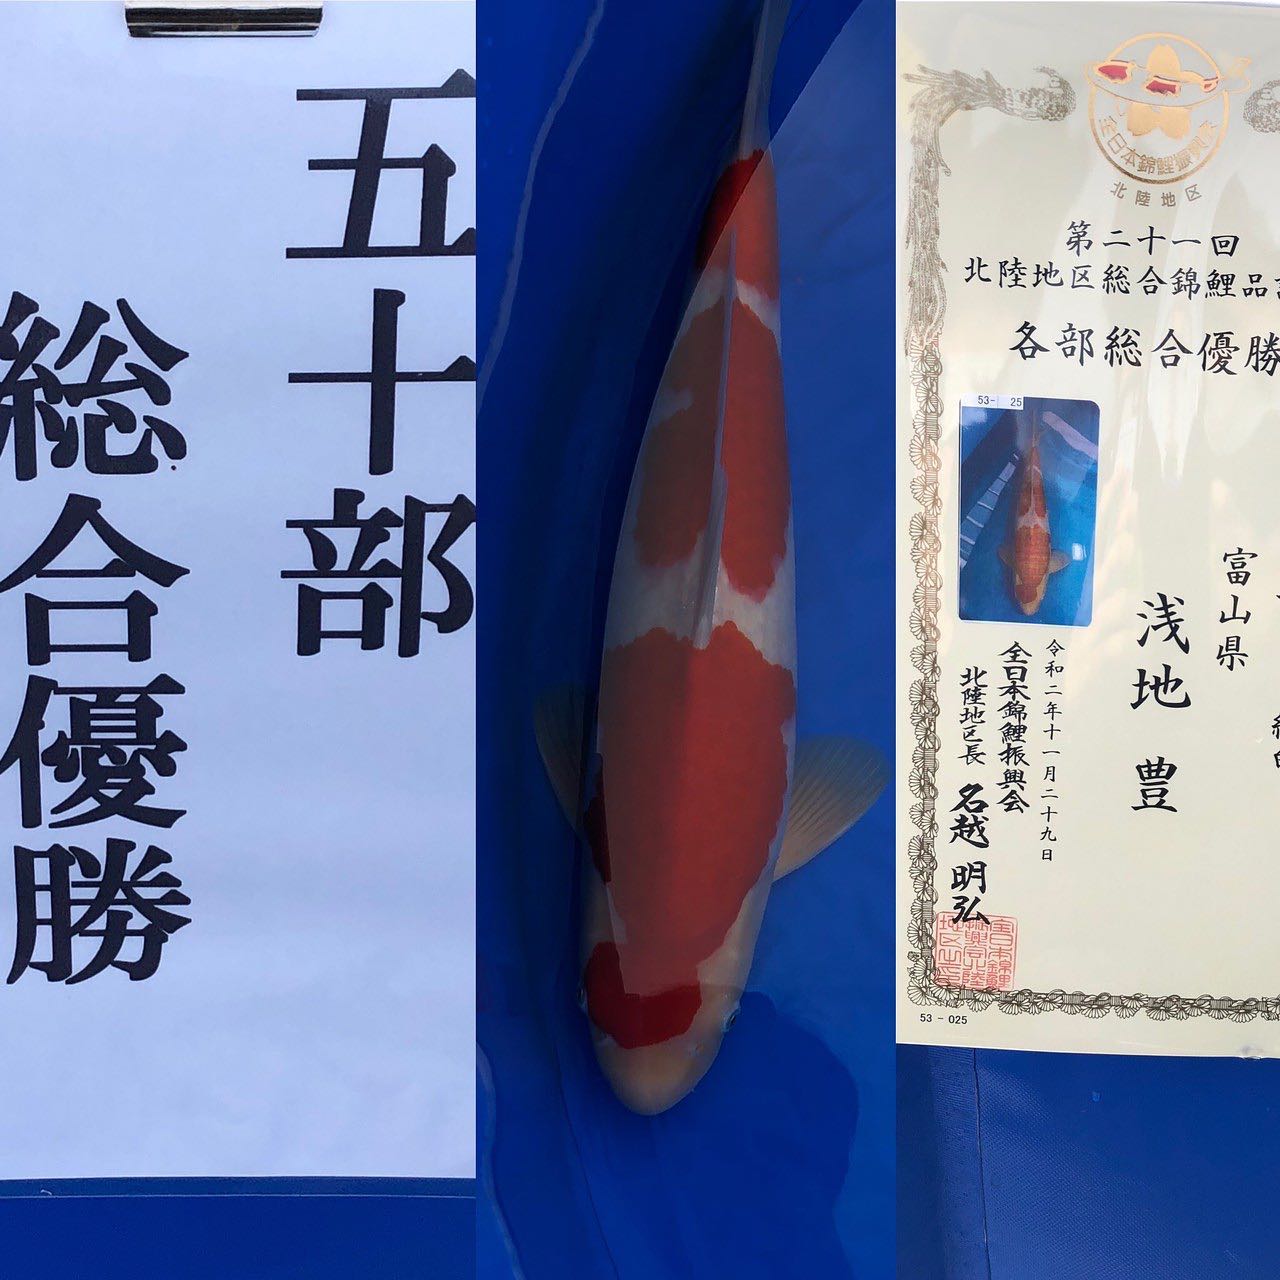 五十部
総合優勝
全日本錦鯉振興会
北陸地区
第二十一回
北陸地区総合錦鯉品
各部総合優勝
53- 25
富山県
浅地 豊
令和二年十一月二十九日
全日本錦鯉振興会
北陸地区長 名越 明弘
53 - 025